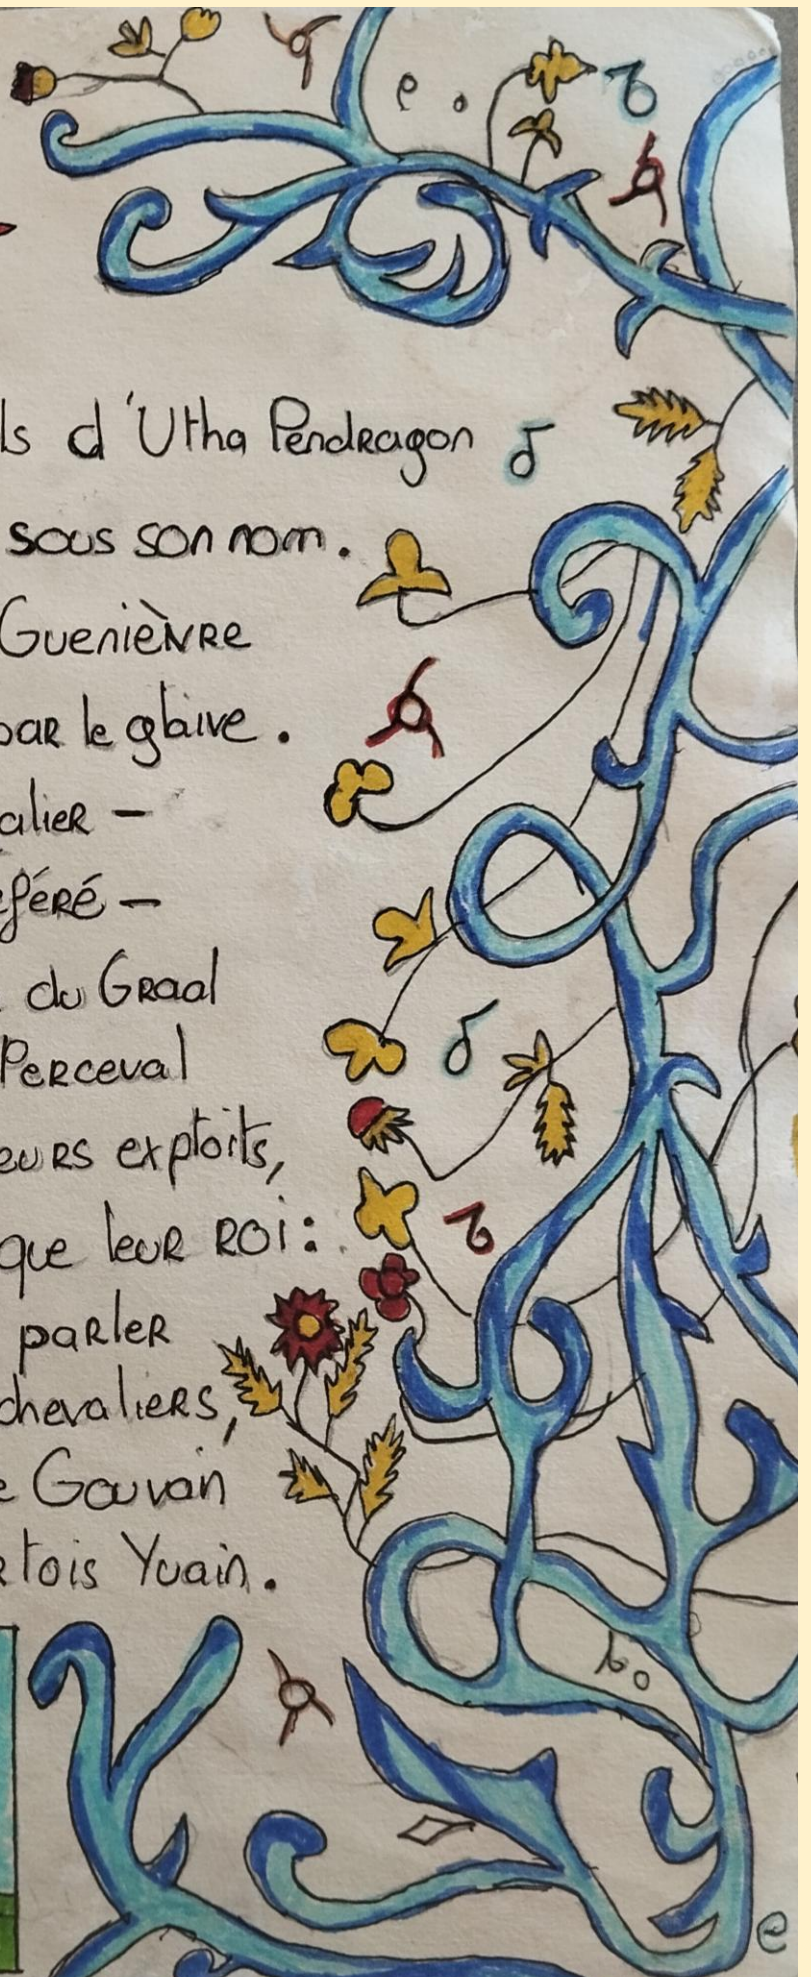 ls d'Utha Pendragon
sous son nom.
Guenièvre
par le glaive.
alier –
éféré –
du Graal
Perceval
eurs exploits,
que leur ROI:
parler
chevaliers,
e Gauvain
rtois Yvain.